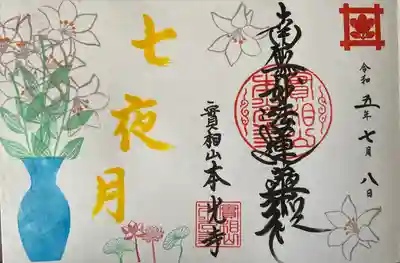 令和五年七月八日
南無妙法蓮華経
實相山本光寺
七夜月